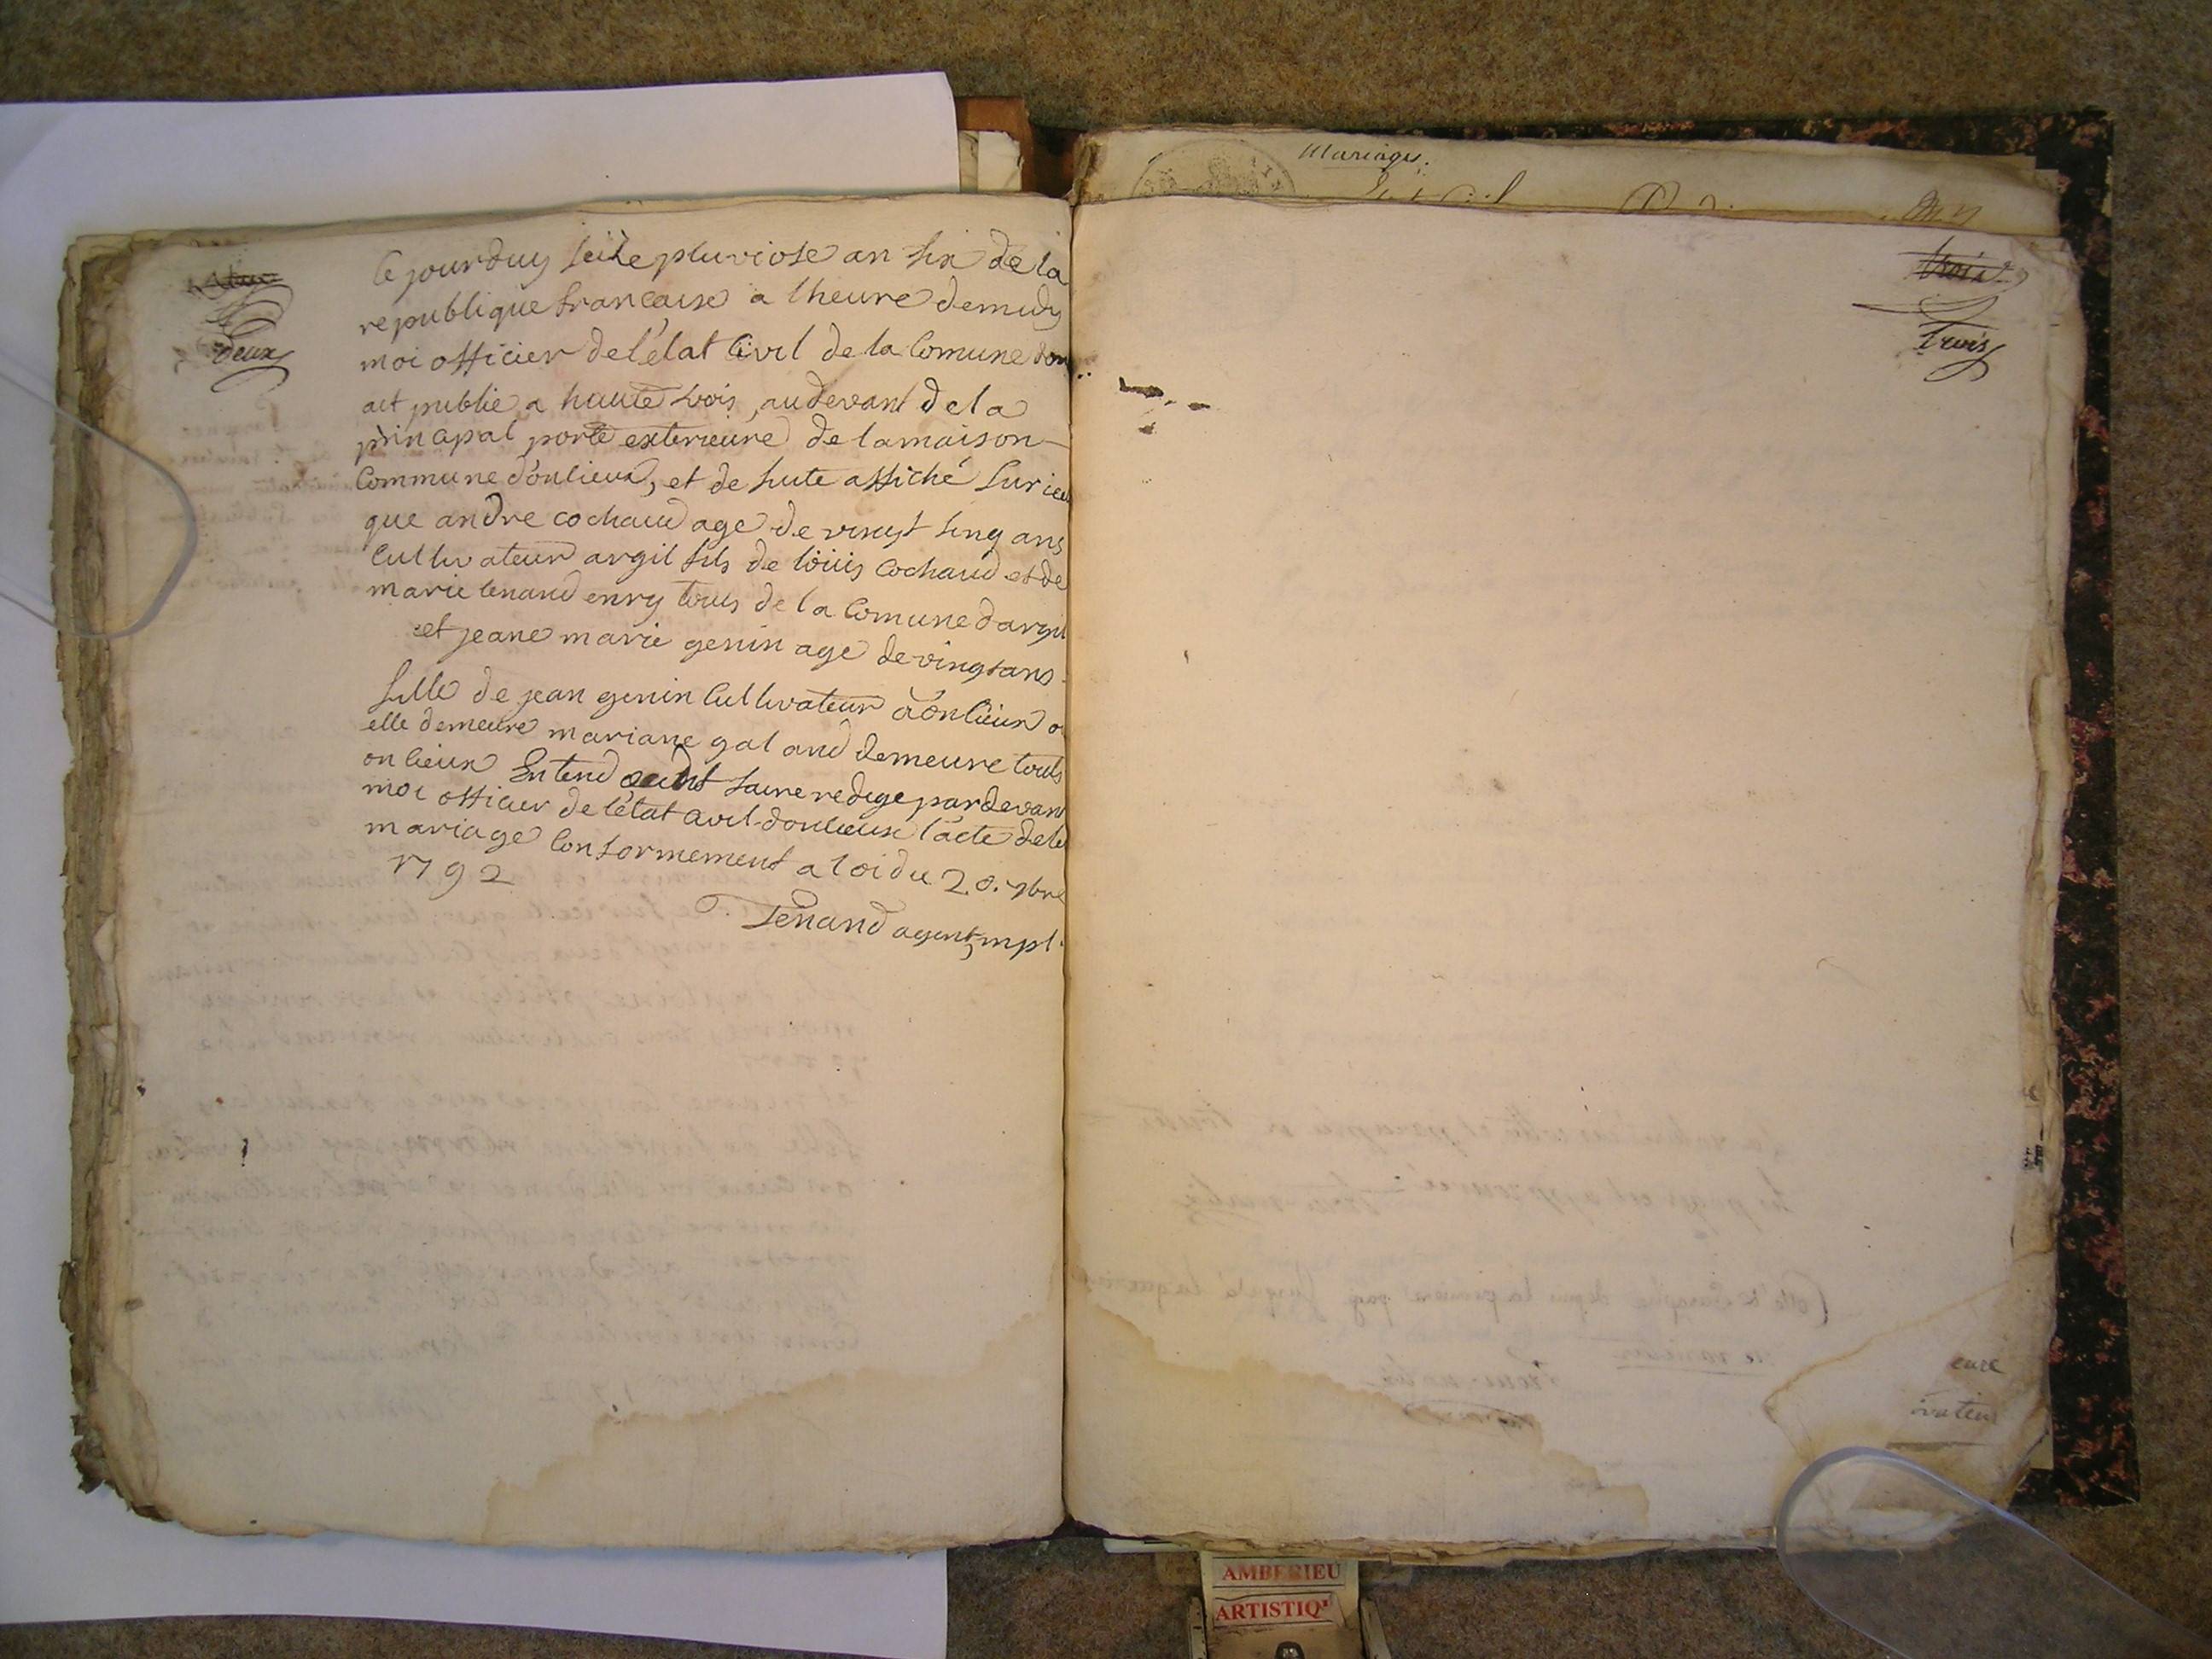 Mariages.
deux
Ce jourduy seile pluviose an six de la
republique francaise a lheure demidy
moi officier de létat Civil de la Comune don
ait publie a haute vois, au devant de la
principal porte exterieure de lamaison
Commune doulieux, et de suite affiché sur icel
que andre cochaud age de vingt sinq ans
Cultivateur argil fils de loüis Cochaud et de
marie tenand enry tous de la Comune dargil
et jeane marie genin age de vingtans
fille de jean genin Cultivateur a onlieux o
elle demeure mariane galand demeure touts
onlieux Entend faire redige pardevant
moi officier de létat Civil donlieux lacte dele
mariage Conformement a loi du 20. 7bre
1792
Tenand agent mpl.
trois
Trois
eure
ivateur
AMBERIEU
ARTISTIQ